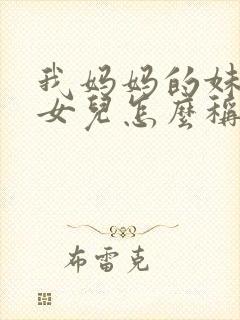 我妈妈的妹
女兒怎麼稱
布雷克